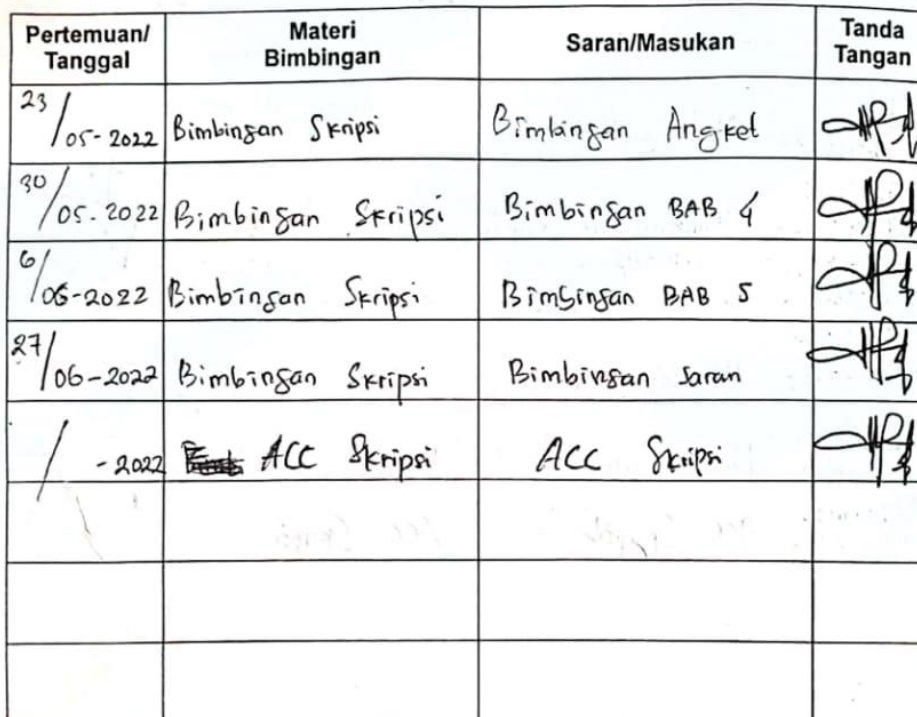 Pertemuan/ Tanggal
Materi Bimbingan
Saran/Masukan
Tanda Tangan
23/05-2022 Bimbingan Skripsi Bimbingan Angket
30/05-2022 Bimbingan Skripsi Bimbingan BAB 4
6/06-2022 Bimbingan Skripsi Bimbingan BAB 5
27/06-2022 Bimbingan Skripsi Bimbingan Saran
/ -2022 ACC Skripsi ACC Skripsi